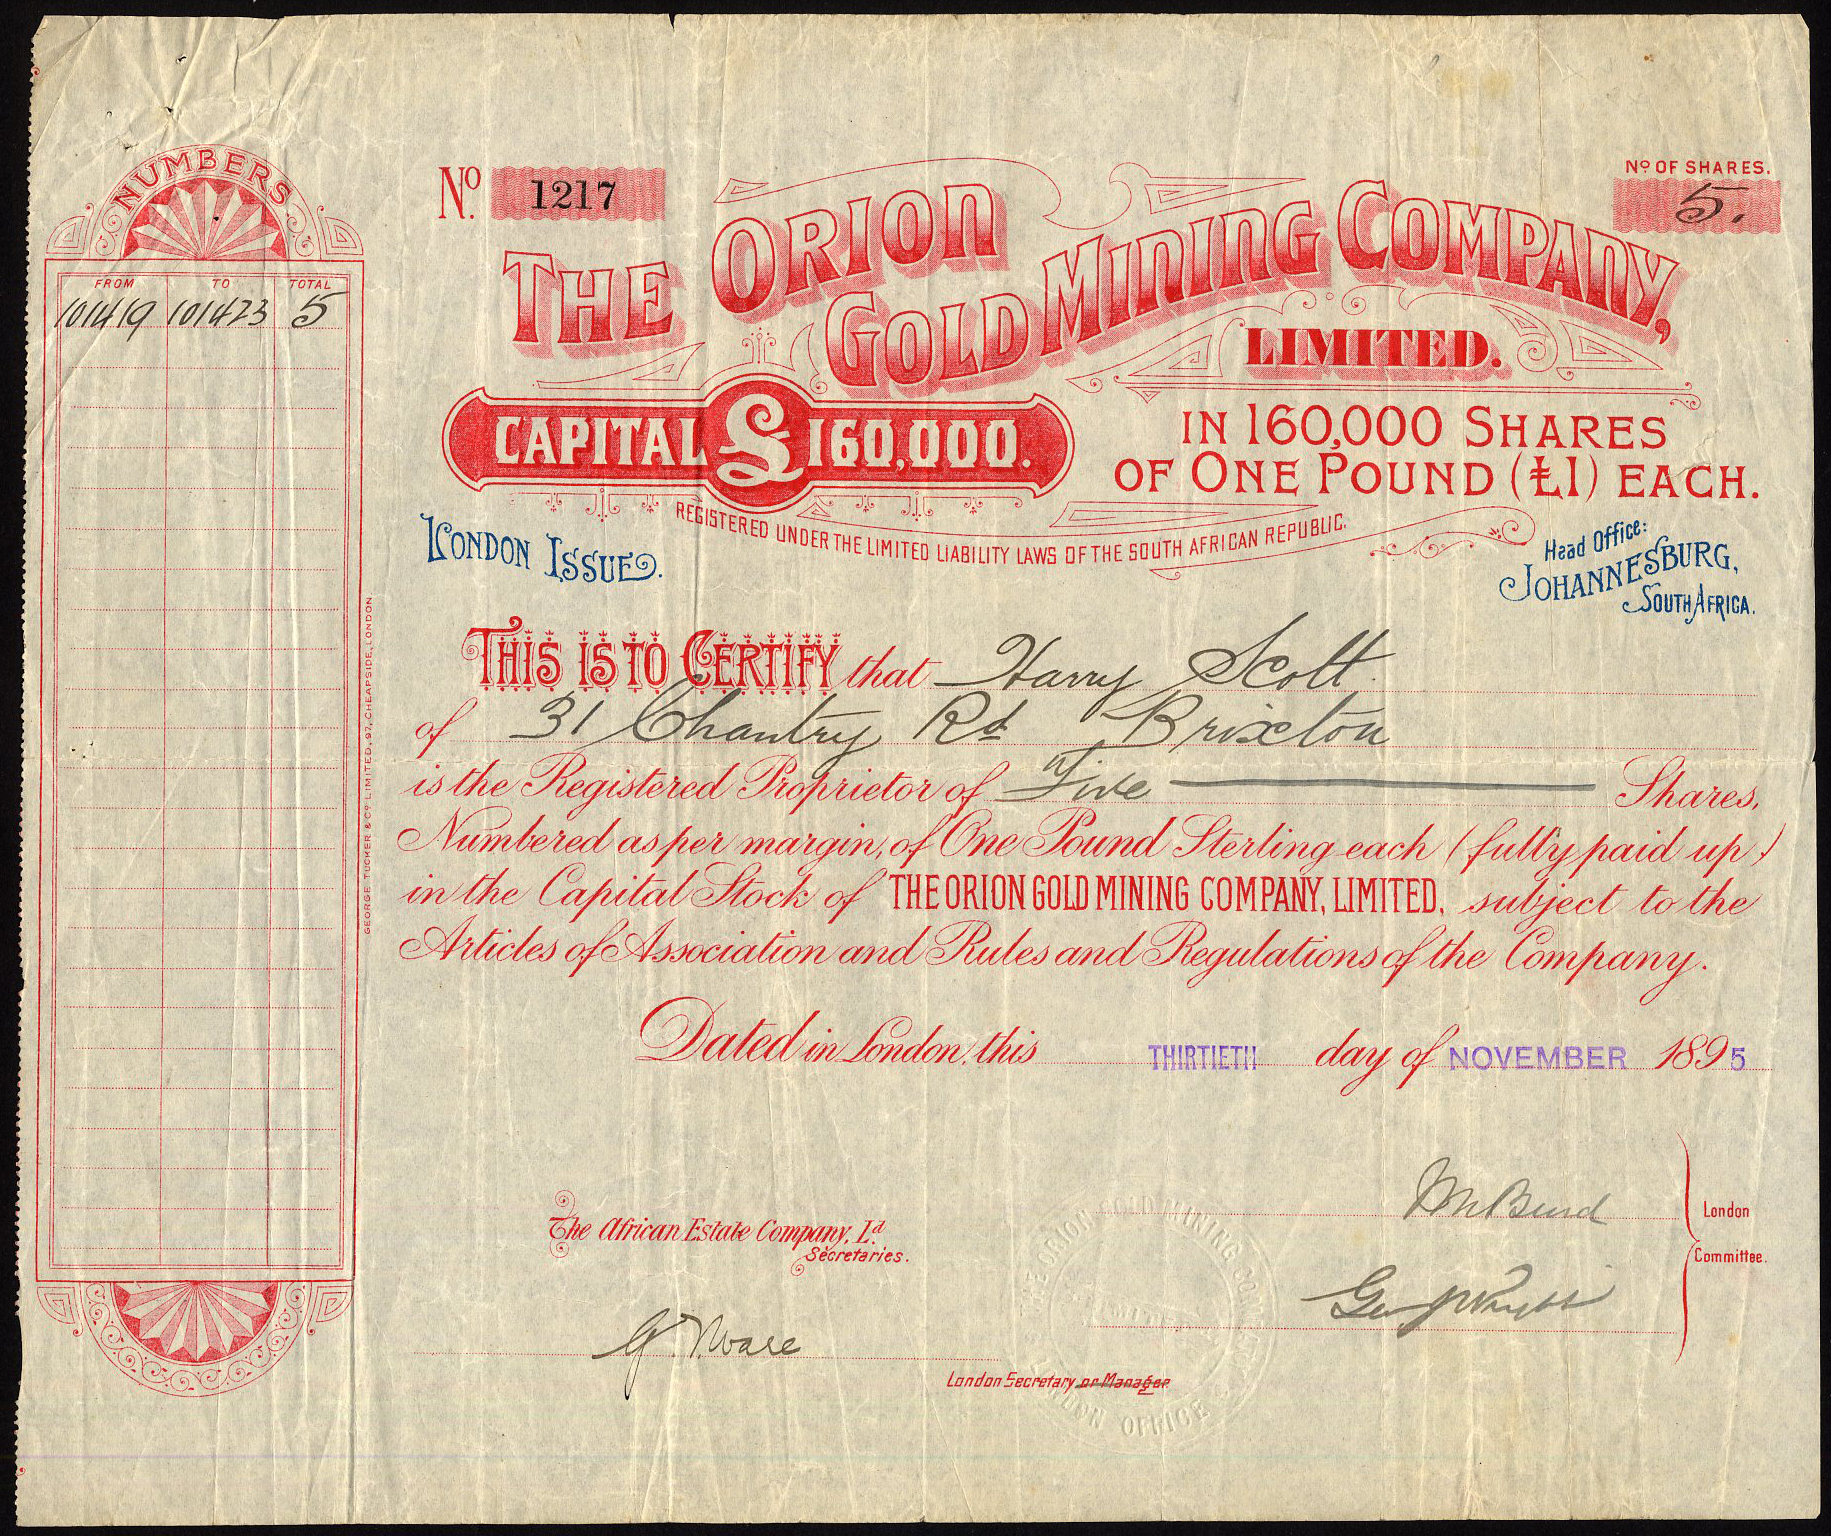 NUMBERS
FROM TO TOTAL
101419 101423 5
GEORGE TUCKER & Co LIMITED, 97, CHEAPSIDE, LONDON
No. 1217
No OF SHARES.
5.
THE ORION GOLD MINING COMPANY,
LIMITED.
CAPITAL £160,000.
IN 160,000 SHARES
OF ONE POUND (£1) EACH.
REGISTERED UNDER THE LIMITED LIABILITY LAWS OF THE SOUTH AFRICAN REPUBLIC.
LONDON ISSUE.
Head Office:
JOHANNESBURG,
SOUTH AFRICA.
THIS IS TO CERTIFY that Harry Scott
of 31 Chantry Rd Brixton
is the Registered Proprietor of Five Shares,
Numbered as per margin, of One Pound Sterling each (fully paid up)
in the Capital Stock of THE ORION GOLD MINING COMPANY, LIMITED, subject to the
Articles of Association and Rules and Regulations of the Company.
Dated in London, this THIRTIETH day of NOVEMBER 1895
The African Estate Company, Ld.
Secretaries.
G. Ware
London Secretary or Manager
London
Committee.
ORION GOLD MINING COMPANY
LONDON OFFICE